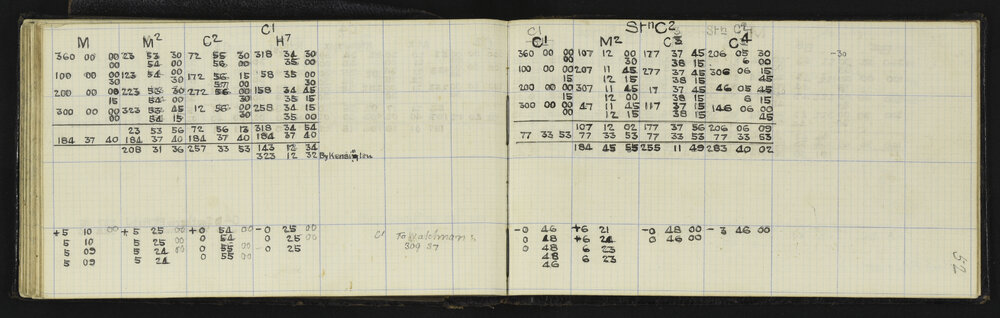 C1
M M2 C2 H7
360 00 00 23 53 30 72 55 30 318 34 30
00 54 00 56 00 35 00
100 00 00 123 54 00 172 56 15 58 35 00
30 30 57 00 30
200 00 00 223 53 30 272 56 00 158 34 45
15 54 00 30 35 15
300 00 00 323 53 45 12 56 00 258 34 15
00 54 15 30 35 00
23 53 56 72 56 13 318 34 54
184 37 40 184 37 40 184 37 40 184 37 40
208 31 36 257 33 53 143 12 34
323 12 32 By Kensington
+5 10 00 +5 25 00 +0 54 00 -0 25 00
5 10 5 25 00 0 54 0 25 00
5 09 5 24 00 0 55 00
5 09 5 24 0 55 00
C1 To Walchman's
309 37
Stn C2
C1 Stn C2
C1 M2 C3 C4
360 00 00 107 12 00 177 37 45 206 05 30 -30
00 30 38 15 6 00
100 00 00 207 11 45 277 37 45 306 06 15
15 12 15 38 15 45
200 00 00 307 11 45 17 37 45 46 05 45
15 12 00 38 15 6 15
300 00 00 47 11 45 117 37 15 146 06 00
00 12 15 38 15 45
107 12 02 177 37 56 206 06 09
77 33 53 77 33 53 77 33 53 77 33 53
184 45 55 255 11 49 283 40 02
-0 46 +6 21 -0 48 00 -3 46 00
0 48 +6 24 0 46 00
0 48 6 23
48 6 23
46
52